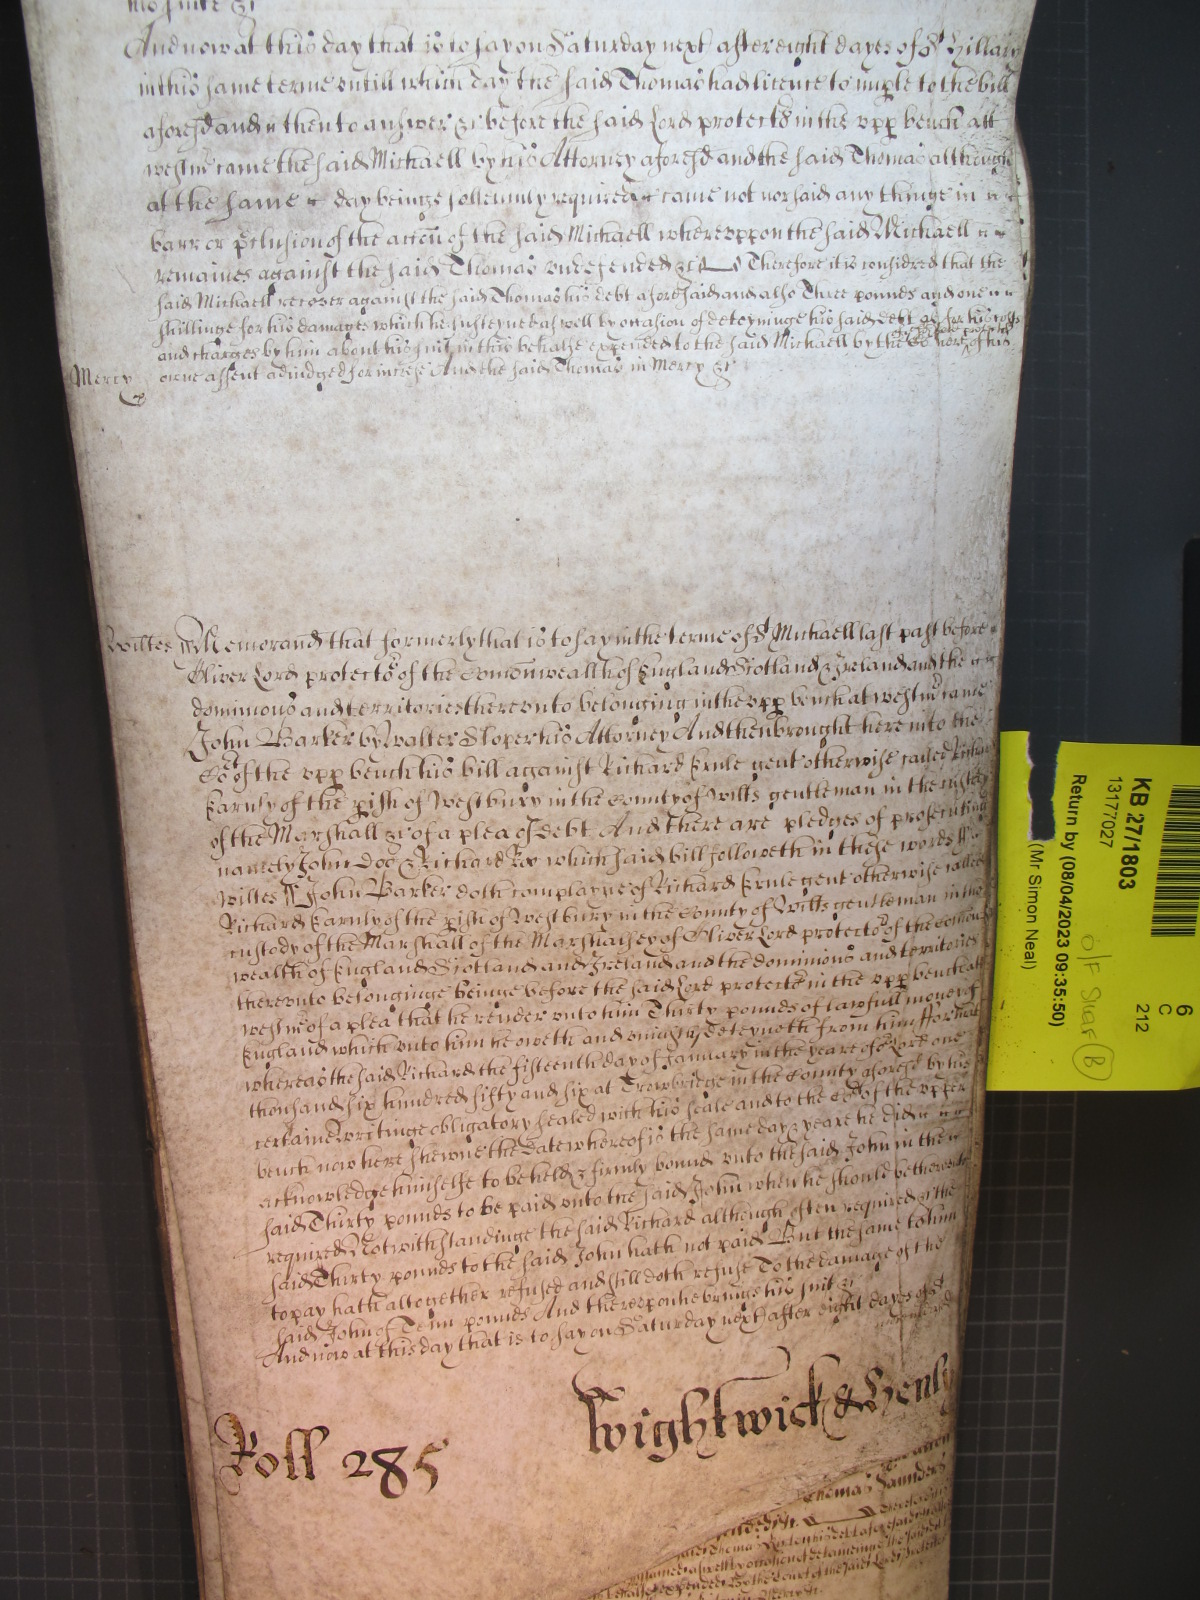 his suite &c
And now at this day that is to say on Saturday next after eight dayes of St Hillary
in this same terme untill which day the said Thomas had licence to imple to the bill
aforesd and then to answer &c before the said Lord protector in the upp bench att
westmr came the said Michaell by his Attorney aforesd and the said Thomas although
at the same day beinge sollemnly required came not nor said any thinge in
barr or pclusion of the accon of the said Michaell whereuppon the said Michaell
remaines against the said Thomas undefended &c Therefore it is considred that the
said Michaell recover against the said Thomas his debt aforesaid and also Three pounds and one
shillinge for his damages which he susteyned as well by occasion of deteyninge his said debt as for his costs
and charges by him about his suit in this behalfe expended to the said Michaell by the Cot here of his
owne assent adiudged for increse And the said Thomas in Mercy &c
Mercy
Wiltes Memorand that formerly that is to say in the terme of St Michaell last past before
Oliver Lord protector of the Comonwealth of England Scotland & Ireland and the
dominions and territories thereunto belonging in the upp bench at westmr came
John Barker by Walter Sloper his Attorney And then brought here into the
Cot of the upp bench his bill against Richard Ernle gent otherwise called Richard
Earnly of the pish of Westbury in the County of Wilts gentleman in the custody
of the Marshall &c of a plea of debt And there are pledges of prosecuting
namely John Doe & Richard Roe which said bill followeth in these words ss
Wiltes ss John Barker doth complayne of Richard Ernle gent otherwise called
Richard Earnly of the pish of Westbury in the County of Wilts gentleman in the
custody of the Marshall of the Marshalsey of Oliver Lord protector of the Common
wealth of England Scotland and Ireland and the dominions and territories
thereunto belonginge beinge before the said Lord protector in the upp bench att
westmr of a plea that he render unto him Thirty pounds of lawfull money of
England which unto him he oweth and uniustly deteyneth from him ffor that
whereas the said Richard the fifteenth day of January in the yeare of or Lord one
thousand six hundred fifty and six at Trowbridge in the County aforesd by his
certaine writinge obligatory sealed with his seale and to the Cot of the upper
bench now heere shewne the date whereof is the same day & yeare he did
acknowledge himselfe to be held & firmly bound unto the said John in the
said Thirty pounds to be paid unto the said John when he should be thereunto
required Notwithstandinge the said Richard although often required &c the
said Thirty pounds to the said John hath not paid But the same to him
to pay hath altogether refused and still doth refuse To the damage of the
said John of Tenn pounds And thereuponhe brings his suit &c
And now at this day that is to say on Saturday next after eight dayes of St
Roll 285
Wightwick & Henly
Thomas Saunders
KB 27/1803
13177027
Return by (08/04/2023 09:35:50)
(Mr Simon Neal)
6
C
212
O/F Shelf B